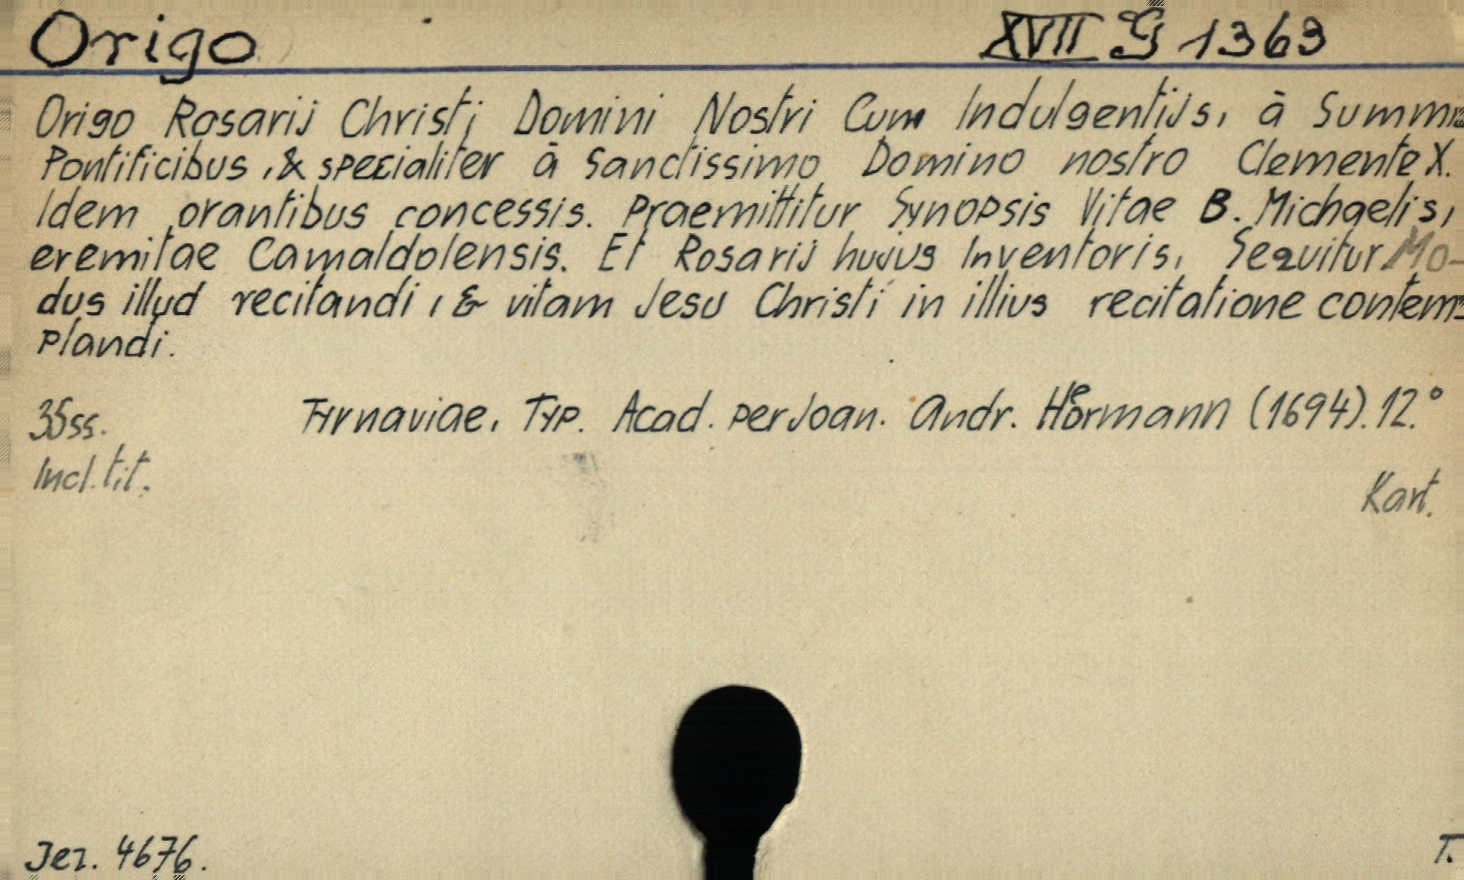 Origo XVII G 1363
Origo Rosarij Christi Domini Nostri Cum Indulgentijs, à Summis
Pontificibus, & specialiter à Sanctissimo Domino nostro Clemente X.
Idem orantibus concessis. Praemittitur Synopsis Vitae B. Michaelis,
eremitae Camaldolensis. Et Rosarij hujus Inventoris, Sequitur Mo-
dus illud recitandi, & vitam Jesu Christi in illius recitatione contem-
plandi.
35ss. Tyrnaviae, Typ. Acad. per Joan. Andr. Hoͤrmann (1694). 12.°
Incl. tit.
Kart.
Jez. 4676. T.